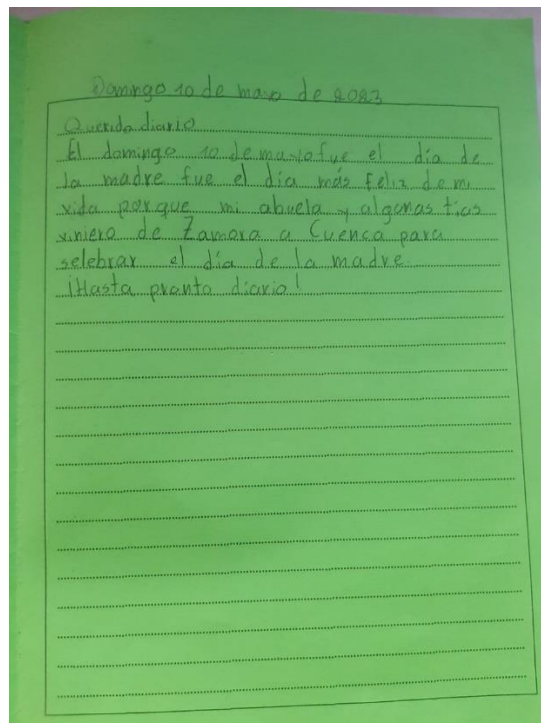 Domingo 10 de mayo de 2023
Querido diario
El domingo 10 de mayo fue el día de
la madre fue el día más feliz de mi
vida porque mi abuela y algunas tías
viniero de Zamora a Cuenca para
selebrar el día de la madre.
¡Hasta pronto diario!